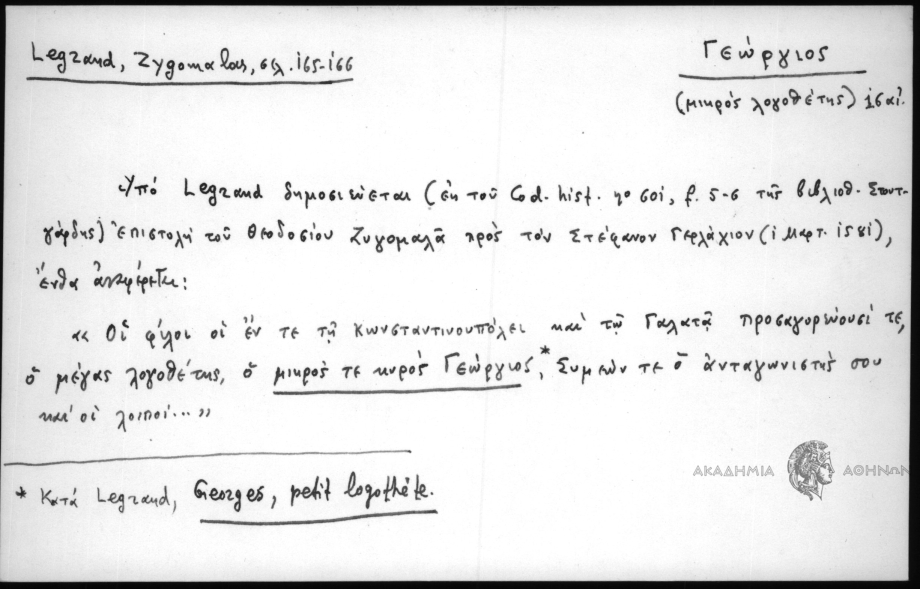 Legrand, Zygomalas, σελ. 165-166
Γεώργιος
(μικρός λογοθέτης) 16 αἰ.
Ὑπό Legrand δημοσιεύεται (ἐκ τοῦ Cod. hist. no 601, f. 5-6 τῆς βιβλιοθ. Στουτ-
γάρδης) ἐπιστολή τοῦ Θεοδοσίου Ζυγομαλᾶ πρὸς τὸν Στέφανον Γερλάχιον (1 Μαρτ. 1581),
ἔνθα ἀναφέρεται:
«Οἱ φίλοι οἱ ἔν τε τῇ Κωνσταντινουπόλει καὶ τῷ Γαλατᾷ προσαγορεύουσί τε,
ὁ μέγας λογοθέτης, ὁ μικρός τε κυρός Γεώργιος*, Συμεών τε ὁ ἀνταγωνιστής σου
καὶ οἱ λοιποί...»
* Κατά Legrand, Georges, petit logothète.
ΑΚΑΔΗΜΙΑ ΑΘΗΝΩΝ